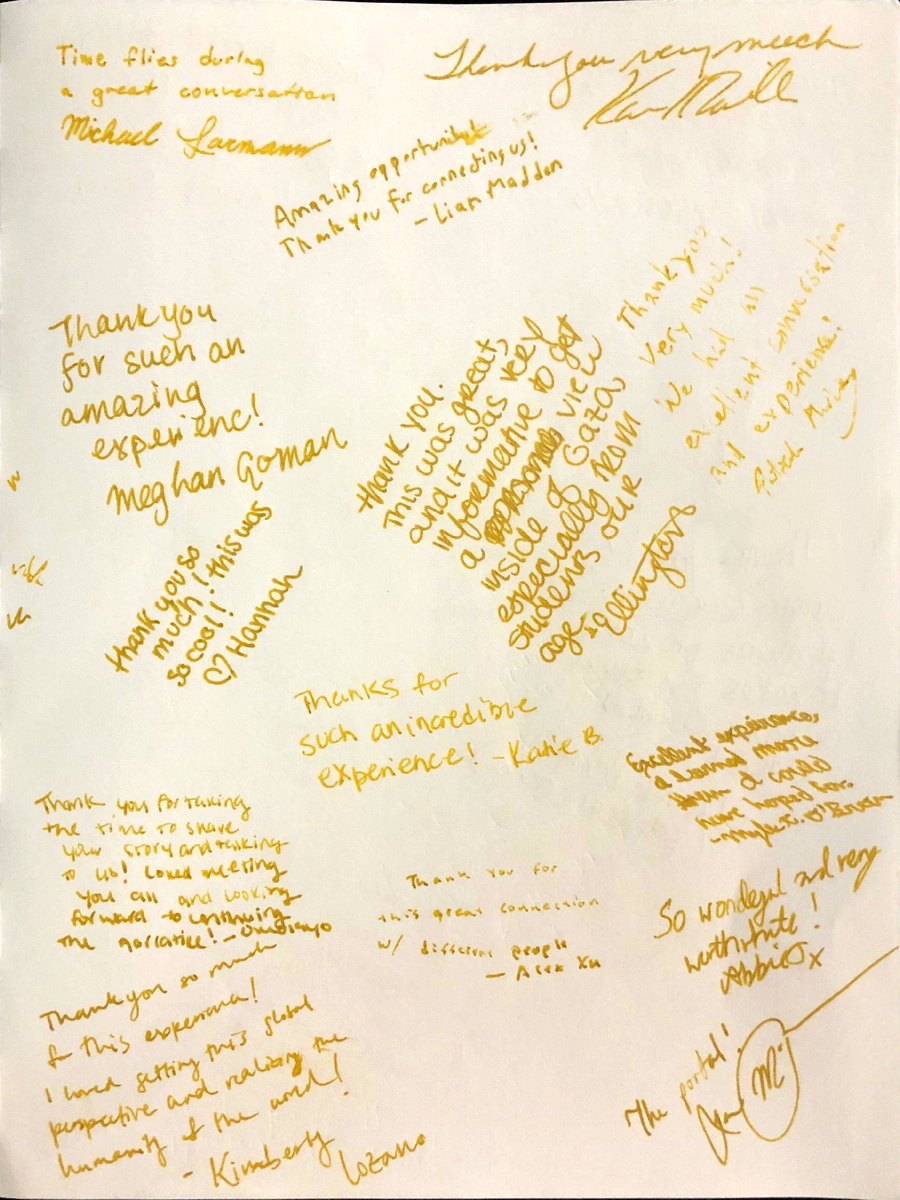 Time flies during
a great conversation
Michael Larmann
Thank you very much
Amazing opportunity!
Thank you for connecting us!
- Lian Maddon
Thank you
for such an
amazing
experienc!
Meghan Gorman
thank you.
This was great,
and it was very
informative to get
a personal view
inside of Gaza,
especially from
students our
age. Ellington
Thank you
very much!
We had an
excellent conversation
and experience!
thank you so
much! this was
so cool!
♡ Hannah
Thanks for
such an incredible
experience! - Katie B.
Excellent experience,
learned more
than I could
have hoped for.
Thank you for taking
the time to share
your story and talking
to us! Loved meeting
you all and looking
forward to continuing
the narrative! -
Thank you for
this great connection
w/ different people
— Alex Xu
So wonderful and very
worthwhile!
Abbie x
Thank you so much
for this experience!
I loved getting this global
perspective and realizing the
humanity of the world!
- Kimberly Lozano
The portal!